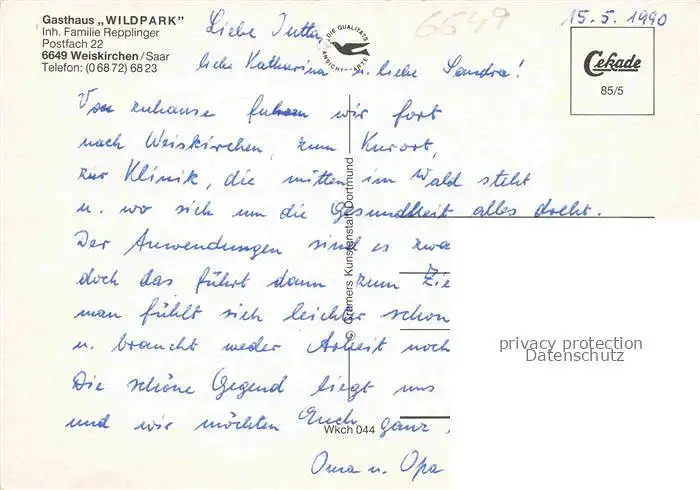 Gasthaus „WILDPARK"
Inh. Familie Repplinger
Postfach 22
6649 Weiskirchen/Saar
Telefon: (0 68 72) 68 23
DIE QUALITÄTS
ANSICHTSKARTE
6649
15.5.1990
Cekade
85/5
Liebe Jutta
liebe Katharina u. liebe Sandra!
Von zuhause fuhren wir fort
nach Weiskirchen, zum Kurort,
zur Klinik, die mitten im Wald steht
u. wo sich um die Gesundheit alles dreht.
Der Anwendungen sind es zwa
doch das führt dann zum Zie
man fühlt sich leichter schon
u. braucht weder Arbeit noch
Die schöne Gegend liegt uns
und wir möchten Euch ganz
Oma u. Opa
© Cramers Kunstanstalt Dortmund
Wkch 044
privacy protection
Datenschutz